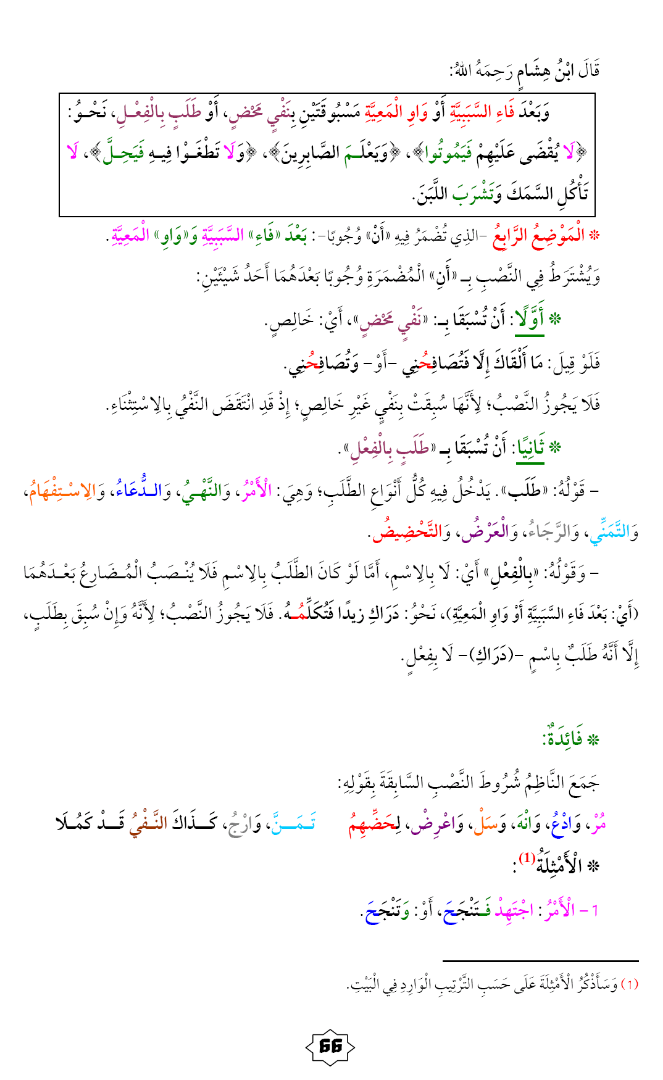 قَالَ ابْنُ هِشَامٍ رَحِمَهُ اللهُ:
وَبَعْدَ فَاءِ السَّبَبِيَّةِ أَوْ وَاوِ الْمَعِيَّةِ مَسْبُوقَتَيْنِ بِنَفْيٍ مَحْضٍ، أَوْ طَلَبٍ بِالْفِعْـلِ، نَحْـوُ:
﴿لَا يُقْضَى عَلَيْهِمْ فَيَمُوتُوا﴾، ﴿وَيَعْلَـمَ الصَّابِرِينَ﴾، ﴿وَلَا تَطْغَـوْا فِيـهِ فَيَحِـلَّ﴾، لَا
تَأْكُلِ السَّمَكَ وَتَشْرَبَ اللَّبَنَ.
* الْمَوْضِعُ الرَّابِعُ -الذِي تُضْمَرُ فِيهِ «أَنْ» وُجُوبًا-: بَعْدَ «فَاءِ» السَّبَبِيَّةِ وَ«وَاوِ» الْمَعِيَّةِ.
وَيُشْتَرَطُ فِي النَّصْبِ بِـ «أَنِ» الْمُضْمَرَةِ وُجُوبًا بَعْدَهُمَا أَحَدُ شَيْئَيْنِ:
* أَوَّلًا: أَنْ تُسْبَقَا بِـ: «نَفْيٍ مَحْضٍ»، أَيْ: خَالِصٍ.
فَلَوْ قِيلَ: مَا أَلْقَاكَ إِلَّا فَتُصَافِحُنِي -أَوْ- وَتُصَافِحُنِي.
فَلَا يَجُوزُ النَّصْبُ؛ لِأَنَّهَا سُبِقَتْ بِنَفْيٍ غَيْرِ خَالِصٍ؛ إِذْ قَدِ انْتَقَضَ النَّفْيُ بِالِاسْتِثْنَاءِ.
* ثَانِيًا: أَنْ تُسْبَقَا بِـ «طَلَبٍ بِالْفِعْلِ».
- قَوْلُهُ: «طَلَب». يَدْخُلُ فِيهِ كُلُّ أَنْوَاعِ الطَّلَبِ؛ وَهِيَ: الْأَمْرُ، وَالنَّهْـيُ، وَالـدُّعَاءُ، وَالِاسْـتِفْهَامُ،
وَالتَّمَنِّي، وَالرَّجَاءُ، وَالْعَرْضُ، وَالتَّحْضِيضُ.
- وَقَوْلُهُ: «بِالْفِعْلِ» أَيْ: لَا بِالِاسْمِ، أَمَّا لَوْ كَانَ الطَّلَبُ بِالِاسْمِ فَلَا يُنْـصَبُ الْمُـضَارِعُ بَعْـدَهُمَا
(أَيْ: بَعْدَ فَاءِ السَّبَبِيَّةِ أَوْ وَاوِ الْمَعِيَّةِ)، نَحْوُ: دَرَاكِ زيدًا فَتُكَلِّمُـهُ. فَلَا يَجُوزُ النَّصْبُ؛ لِأَنَّهُ وَإِنْ سُبِقَ بِطَلَبٍ،
إِلَّا أَنَّهُ طَلَبٌ بِاسْمٍ -(دَرَاكِ)- لَا بِفِعْلٍ.
* فَائِدَةٌ:
جَمَعَ النَّاظِمُ شُرُوطَ النَّصْبِ السَّابِقَةَ بِقَوْلِهِ:
مُرْ، وَادْعُ، وَانْهَ، وَسَلْ، وَاعْرِضْ، لِحَضِّهِمُ تَـمَـــنَّ، وَارْجُ، كَــذَاكَ النَّـفْيُ قَــدْ كَمُـلَا
* الْأَمْثِلَةُ(1):
1- الْأَمْرُ: اجْتَهِدْ فَـتَنْجَحَ، أَوْ: وَتَنْجَحَ.
(1) وَسَأَذْكُرُ الْأَمْثِلَةَ عَلَى حَسَبِ التَّرْتِيبِ الْوَارِدِ فِي الْبَيْتِ.
66